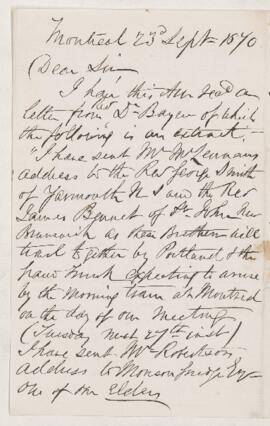 Montreal 23d Sept 1870
Dear Sir
I have this day read a
letter from Revd Dr Bayne of which
the following is an extract.
"I have sent Mr McLennan's
address to the Rev George Smith
of Yarmouth N S and the Rev
James Bennet of St. John New
Brunswick as these Brethren will
travel together by Portland & the
Grand Trunk expecting to arrive
by the morning train at Montreal
on the day of our meeting
(Tuesday next 27th inst)
I have sent Mr Robertson's
address to Monson Esq
one of our Elders